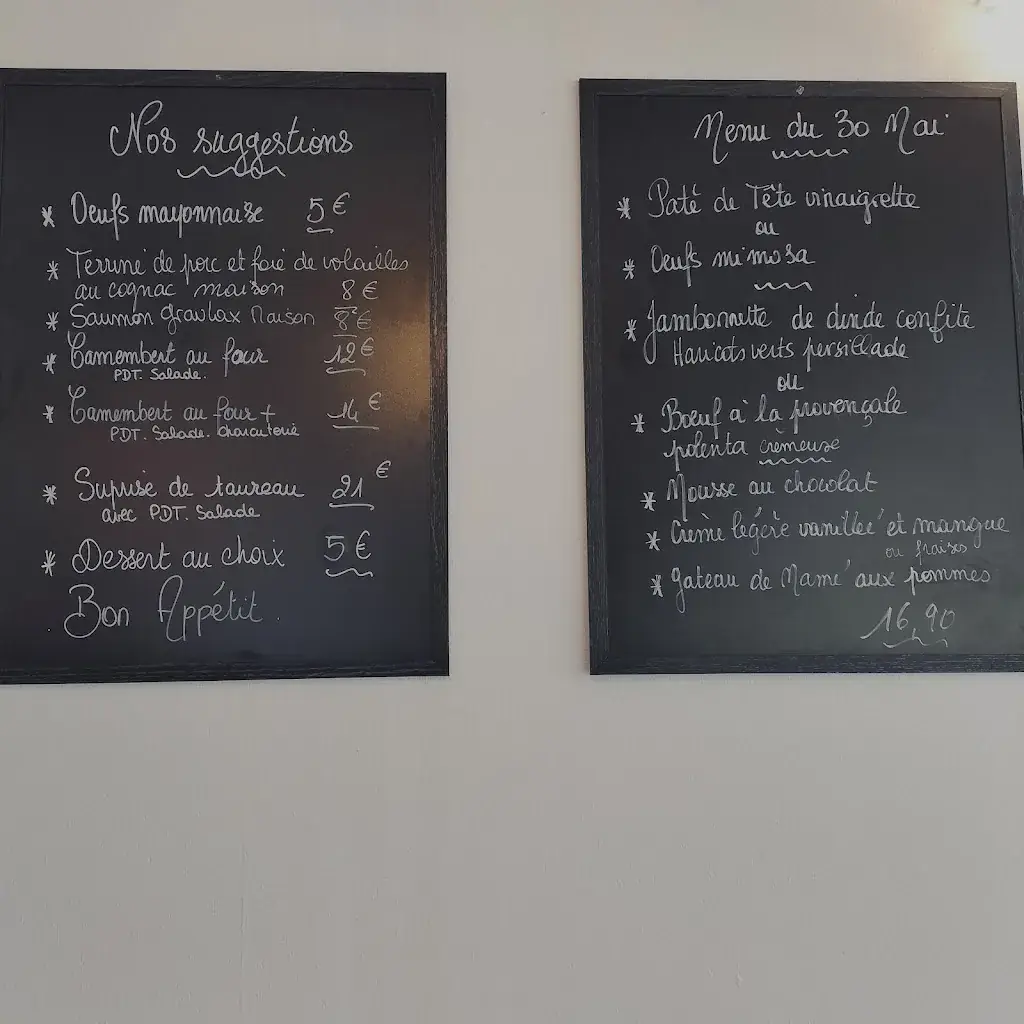 Nos suggestions
* Oeufs mayonnaise 5€
* Terrine de porc et foie de volailles
au cognac maison 8€
* Saumon gravlax Maison 8€
* Camembert au four 12€
PDT. Salade.
* Camembert au four + 14€
PDT. Salade. Charcuterie
* Suprise de taureau 21€
avec PDT. Salade
* Dessert au choix 5€
Bon Appétit.
Menu du 30 Mai
* Paté de Tête vinaigrette
ou
* Oeufs mimosa
* Jambonnette de dinde confite
Haricots verts persillade
ou
* Boeuf à la provençale
polenta crèmeuse
* Mousse au chocolat
* Crème légère vanillée et mangue
ou fraises
* Gateau de Mamé aux pommes
16,90